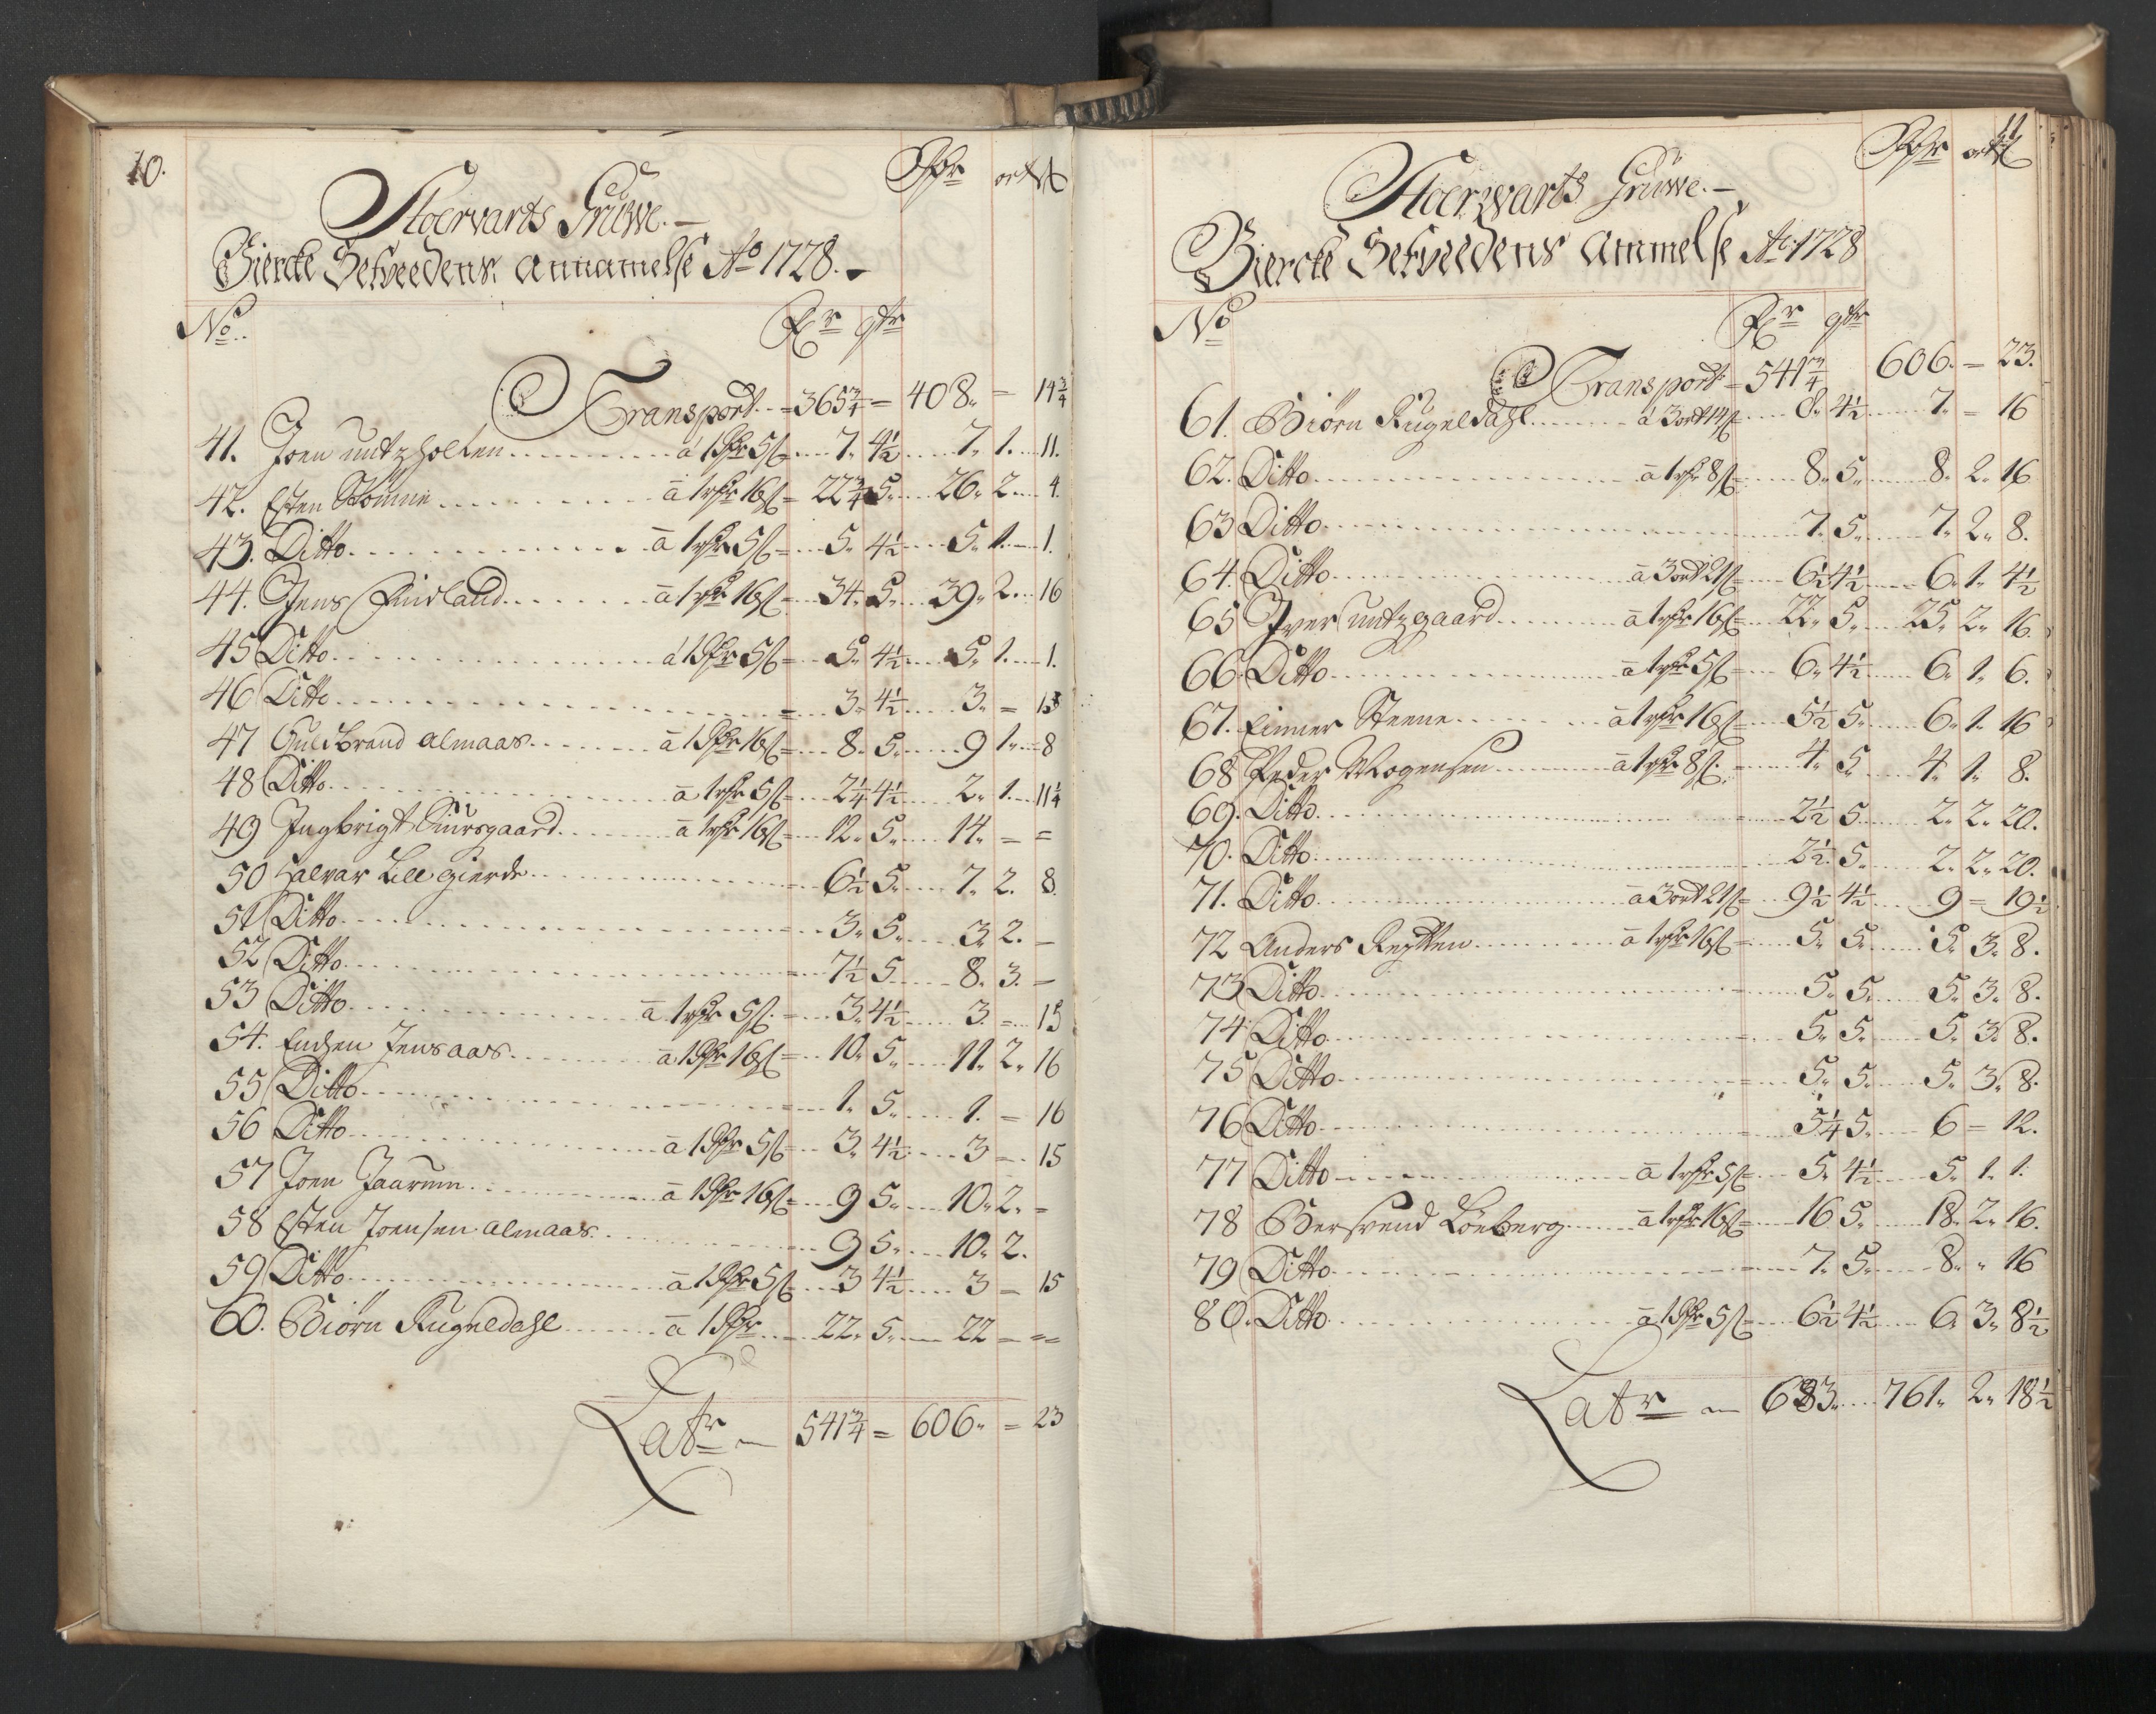 10.
Rdr ort ß
Stoervarts Gruwe.
Biercke Setveedens Annamelse Ao 1728.
No
Fr qtr
Transport 365¾ = 408. = 14¾
41. Joen untzholten à 1 Rdr 5 ß 7. 4½ 7. 1. 11.
42. Esten â 1 rdr 16 ß 22¾ 5. 26. 2. 4.
43. Ditto â 1 rdr 5 ß 5. 4½ 5. 1. 1.
44. Jens Findland â 1 rdr 16 ß 34. 5. 39. 2. 16
45 Ditto à 1 Rdr 5 ß 5. 4½ 5. 1. 1.
46 Ditto 3. 4½ 3. = 15
47 Guldbrand Almaas â 1 Rdr 16 ß 8. 5. 9 1. 8
48 Ditto â 1 rdr 5 ß 2¼ 4½ 2. 1. 11¼
49 Ingbrigt Kuirsgaard â 1 rdr 16 ß 12. 5. 14. = =
50 Halvar Lillegierde 6½ 5. 7. 2. 8.
51 Ditto 3. 5. 3. 2. –
52 Ditto 7½ 5 8. 3. –
53 Ditto â 1 rdr 5 ß 3. 4½ 3. = 15
54. Endzen Jensaas â 1 Rdr 16 ß 10. 5. 11. 2. 16
55 Ditto 1. 5. 1. = 16
56 Ditto â 1 Rdr 5 ß 3. 4½ 3 = 15
57 Joen Jaarum â 1 Rdr 16 ß 9 5. 10. 2. =
58 Esten Joensen Almaas 9 5. 10. 2.
59 Ditto â 1 Rdr 5 ß 3 4½ 3 – 15
60. Biörn Rugeldahl â 1 Rdr 22. 5. 22 – =
Latr 541¾ = 606. = 23
11
Rdr ort ß
Stoerwarts Gruwe.
Biercke Setveedens Ammelse Ao 1728
No
Fr qtr
Transport 541¾ 606. = 23.
61. Biörn Rugeldahl à 3 ort 14 ß 8. 4½ 7. = 16
62. Ditto â 1 rdr 8 ß 8. 5. 8. 2. 16
63 Ditto 7. 5. 7. 2. 8.
64. Ditto â 3 ort 21 ß 6½ 4½ 6. 1. 4½
65 Iver untzgaard â 1 rdr 16 ß 22. 5. 25. 2. 16.
66. Ditto â 1 rdr 5 ß 6. 4½ 6. 1. 6.
67. Einner Steene â 1 rdr 16 ß 5½ 5. 6. 1. 16
68 Peder Mogensen â 1 rdr 8 ß 4. 5. 4. 1. 8.
69. Ditto 2½ 5. 2. 2. 20.
70. Ditto 2½ 5. 2. 2. 20.
71. Ditto â 3 ort 21 ß 9½ 4½ 9 = 19½
72 Anders Reitten â 1 rdr 16 ß 5. 5. 5. 3. 8.
73 Ditto 5. 5. 5. 3. 8.
74. Ditto 5. 5. 5. 3. 8.
75 Ditto 5. 5. 5. 3. 8.
76 Ditto 5¼ 5. 6 – 12.
77 Ditto â 1 rdr 5 ß 5. 4½ 5. 1. 1.
78 Bersvend Löeberg â 1 rdr 16 ß 16 5. 18. 2. 16.
79 Ditto 7. 5. 8. " 16
80. Ditto â 1 Rdr 5 ß 6½ 4½ 6. 3. 8½
Latr 683. 761. 2. 18½